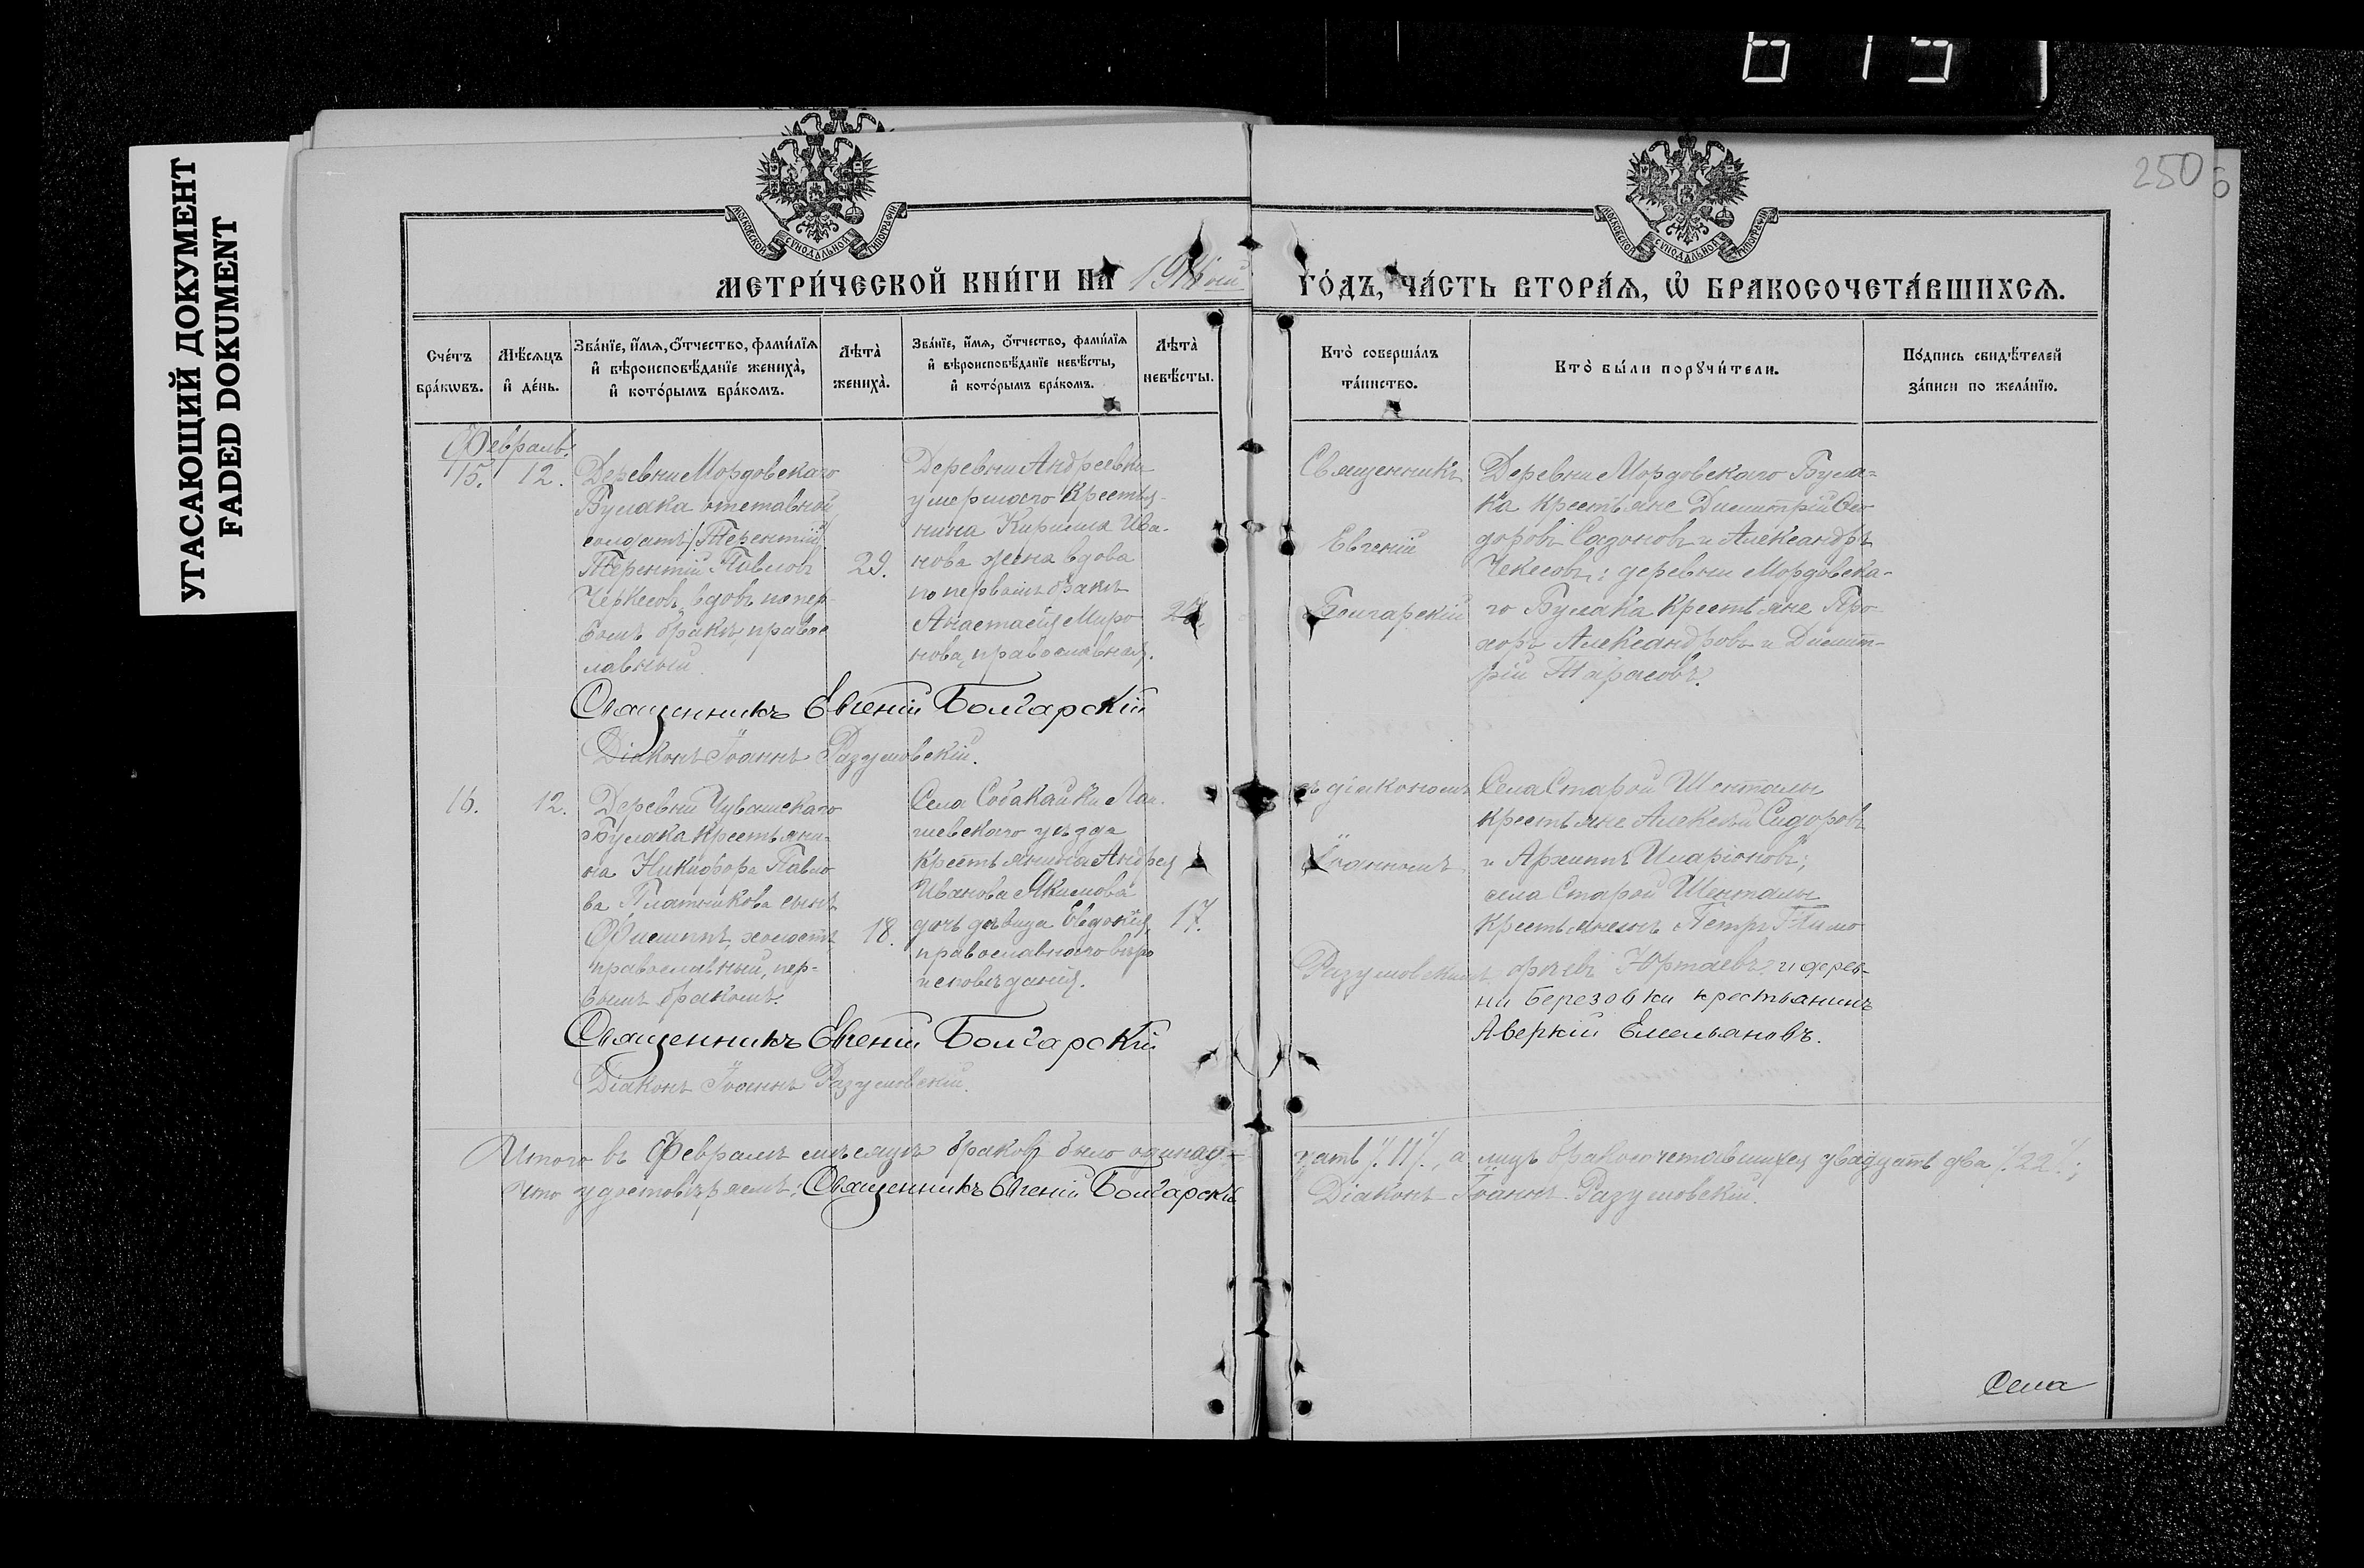 615
УГАСАЮЩИЙ ДОКУМЕНТ
FADED DOKUMENT
250
6
МОСКОВСКОЙ СѴНОДАЛЬНОЙ ТИПОГРАФІИ
МОСКОВСКОЙ СѴНОДАЛЬНОЙ ТИПОГРАФІИ
МЕТРИ́ЧЕСКОЙ КНИ́ГИ НА
ГО́ДЪ, ЧА́СТЬ ВТОРА́Я, Ѽ БРАКОСОЧЕТА́ВШИХСЯ.
Сче́тъ бра́кѡвъ.
Мѣ́сяцъ и҆ де́нь.
Зва́нїе, и҆́мя, ѻ҆́тчество, фами́лїя и҆ вѣроисповѣ́данїе жениха̀, и҆ кото́рымъ бра́комъ.
Лѣта̀ жениха̀.
Зва́нїе, и҆́мя, ѻ҆́тчество, фами́лїя и҆ вѣроисповѣ́данїе невѣ́сты, и҆ кото́рымъ бра́комъ.
Лѣта̀ невѣ́сты.
Кто̀ соверша́лъ та́инство.
Кто̀ бы́ли порꙋчи́тели.
По́дпись свидѣ́телей за́писи по жела́нїю.
Февраль.
15.
12.
Деревни Мордовскаго
Булака отставной
солдатъ Терентій
Терентій Павловъ
Черкесовъ, вдовъ по пер-
вомъ бракѣ, правос
лавный.
29.
Деревни Андреевки
умершаго крестья-
нина Кирилла Ива-
нова жена вдова
по первомъ бракѣ
Анастасія Миро
нова, православная.
Священникъ
Евгеній
Болгарскій
Деревни Мордовскаго Була-
ка крестьяне Димитрій Ѳео
доровъ Сазоновъ и Александръ
Чекесовъ; деревни Мордовска-
го Булака крестьяне Про
хоръ Александровъ и Димит-
рій Тарасовъ.
Священникъ Евгеній Болгарскій
Діаконъ Іоаннъ Разумовскій.
16.
12.
Деревни Чувашскаго
Булака крестьяни-
на Никифора Павло
ва Платникова сынъ
Филиппъ, холостъ
православный, пер-
вымъ бракомъ.
18.
Села Собакайки Ла-
ишевскаго уѣзда
крестьянина Андрея
Иванова Якимова
дочь дѣвица Евдокія,
православнаго вѣро
исповѣданія.
17.
съ діакономъ
Іоанномъ
Разумовскимъ
Села Старой Шенталы
крестьяне Алексѣй Сидоровъ
и Архиппъ Иларіоновъ;
села Старой Шенталы
крестьянинъ Петръ Тимо
ѳеевъ Юртаевъ и дерев-
ни Березовки крестьянинъ
Аверкій Емельяновъ.
Священникъ Евгеній Болгарскій
Діаконъ Іоаннъ Разумовскій.
Итого въ Февралѣ мѣсяцѣ браковъ было одиннад-
цать /.11./, а лицъ бракосочетавшихся двадцать два /.22./;
что удостовѣряемъ: Священникъ Евгеній Болгарскій
Діаконъ Іоаннъ Разумовскій.
Села